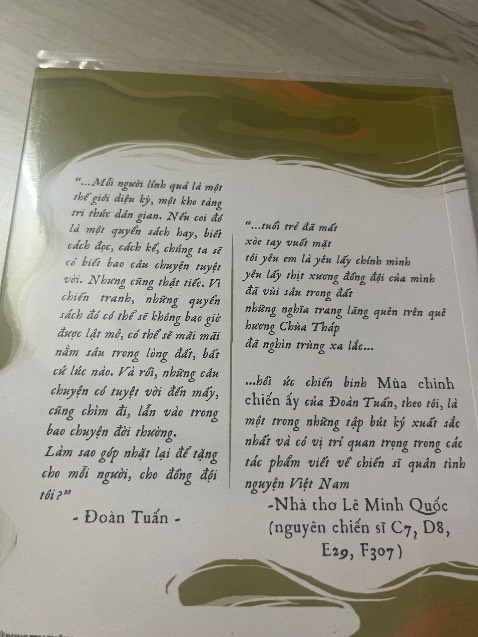 “...Mỗi người lính quả là một
thế giới diệu kỳ, một kho tàng
tri thức dân gian. Nếu coi đó
là một quyển sách hay, biết
cách đọc, cách kể, chúng ta sẽ
có biết bao câu chuyện tuyệt
vời. Nhưng cũng thật tiếc. Vì
chiến tranh, những quyển
sách đó có thể sẽ không bao giờ
được lật mở, có thể sẽ mãi mãi
nằm sâu trong lòng đất, bất
cứ lúc nào. Và rồi, những câu
chuyện có tuyệt vời đến mấy,
cũng chìm đi, lẫn vào trong
bao chuyện đời thường,
Làm sao góp nhặt lại để tặng
cho mỗi người, cho đồng đội
tôi?”
- Đoàn Tuấn -
“...tuổi trẻ đã mất
xòe tay vuốt mặt
tôi yêu em là yêu lấy chính mình
yêu lấy thịt xương đồng đội của mình
đã vùi sâu trong đất
những nghĩa trang lãng quên trên quê
hương Chùa Tháp
đã nghìn trùng xa lắc...
...hồi ức chiến binh Mùa chinh
chiến ấy của Đoàn Tuấn, theo tôi, là
một trong những tập bút ký xuất sắc
nhất và có vị trí quan trọng trong các
tác phẩm viết về chiến sĩ quân tình
nguyện Việt Nam
-Nhà thơ Lê Minh Quốc
(nguyên chiến sĩ C7, D8,
E29, F307)